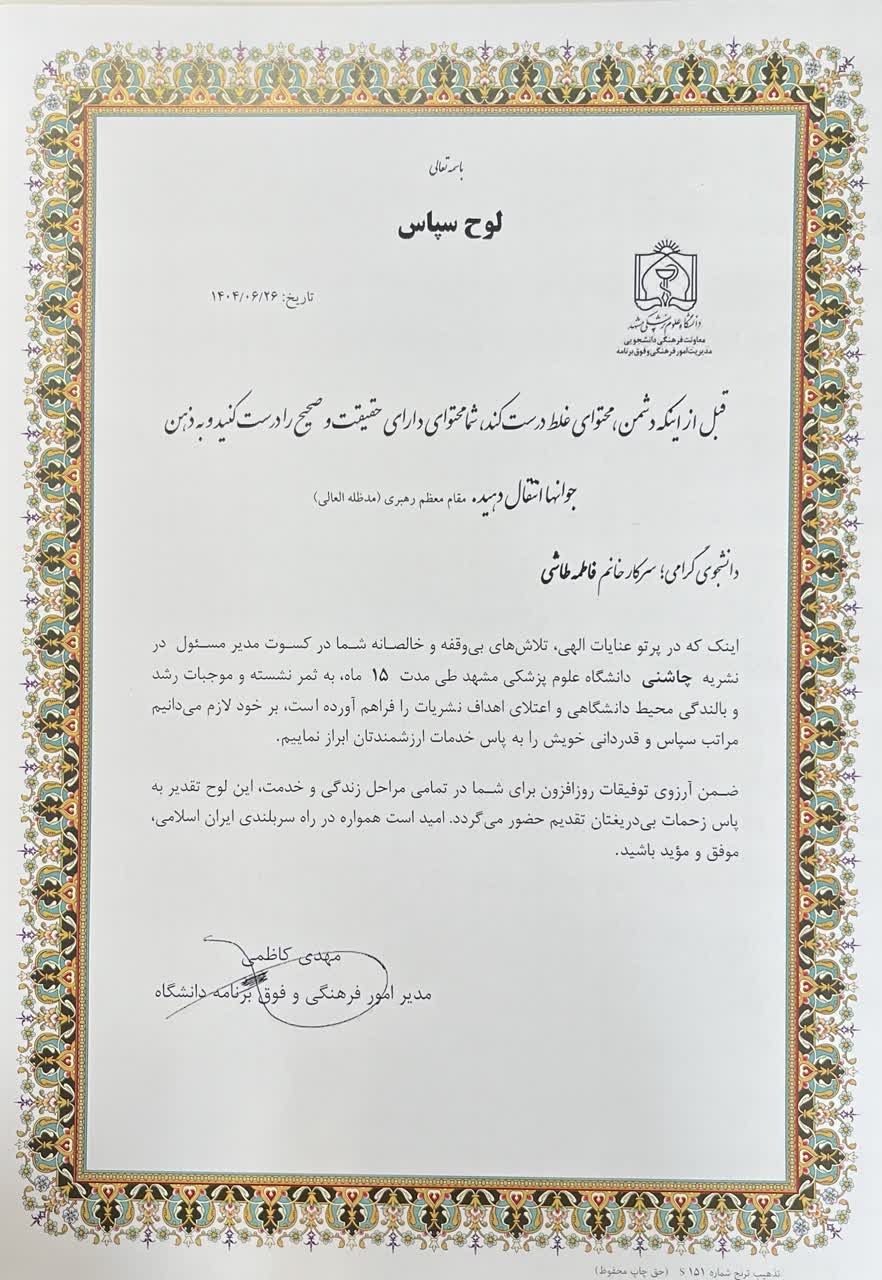 باسمه تعالی
لوح سپاس
دانشگاه علوم پزشکی مشهد
معاونت فرهنگی دانشجویی
مدیریت امور فرهنگی و فوق برنامه
تاریخ: ۱۴۰۴/۰۶/۲۶
قبل از اینکه دشمن، محتوای غلط درست کند، شما محتوای دارای حقیقت و صحیح را درست کنید و به ذهن
جوانها انتقال دهید. مقام معظم رهبری (مدظله العالی)
دانشجوی گرامی؛ سرکار خانم فاطمه طاشی
اینک که در پرتو عنایات الهی، تلاش‌های بی‌وقفه و خالصانه شما در کسوت مدیر مسئول در
نشریه چاشنی دانشگاه علوم پزشکی مشهد طی مدت ۱۵ ماه، به ثمر نشسته و موجبات رشد
و بالندگی محیط دانشگاهی و اعتلای اهداف نشریات را فراهم آورده است، بر خود لازم می‌دانیم
مراتب سپاس و قدردانی خویش را به پاس خدمات ارزشمندتان ابراز نماییم.
ضمن آرزوی توفیقات روزافزون برای شما در تمامی مراحل زندگی و خدمت، این لوح تقدیر به
پاس زحمات بی‌دریغتان تقدیم حضور می‌گردد. امید است همواره در راه سربلندی ایران اسلامی،
موفق و مؤید باشید.
مهدی کاظمی
مدیر امور فرهنگی و فوق برنامه دانشگاه
تذهیب ترنج شماره S ۱۵۱ (حق چاپ محفوظ)